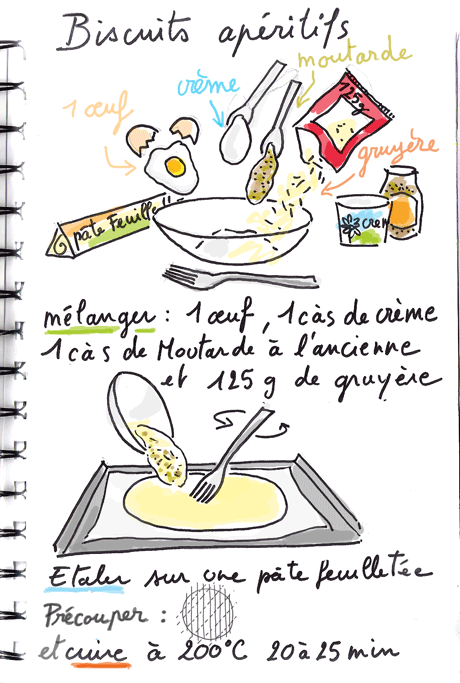 Biscuits apéritifs
moutarde
crème
1 œuf
125g
gruyère
pâte Feuille
crem
mélanger : 1 œuf, 1 càs de crème
1 càs de Moutarde à l'ancienne
et 125 g de gruyère
Etaler sur une pâte feuilletée
Précouper :
et cuire à 200°C 20 à 25 min